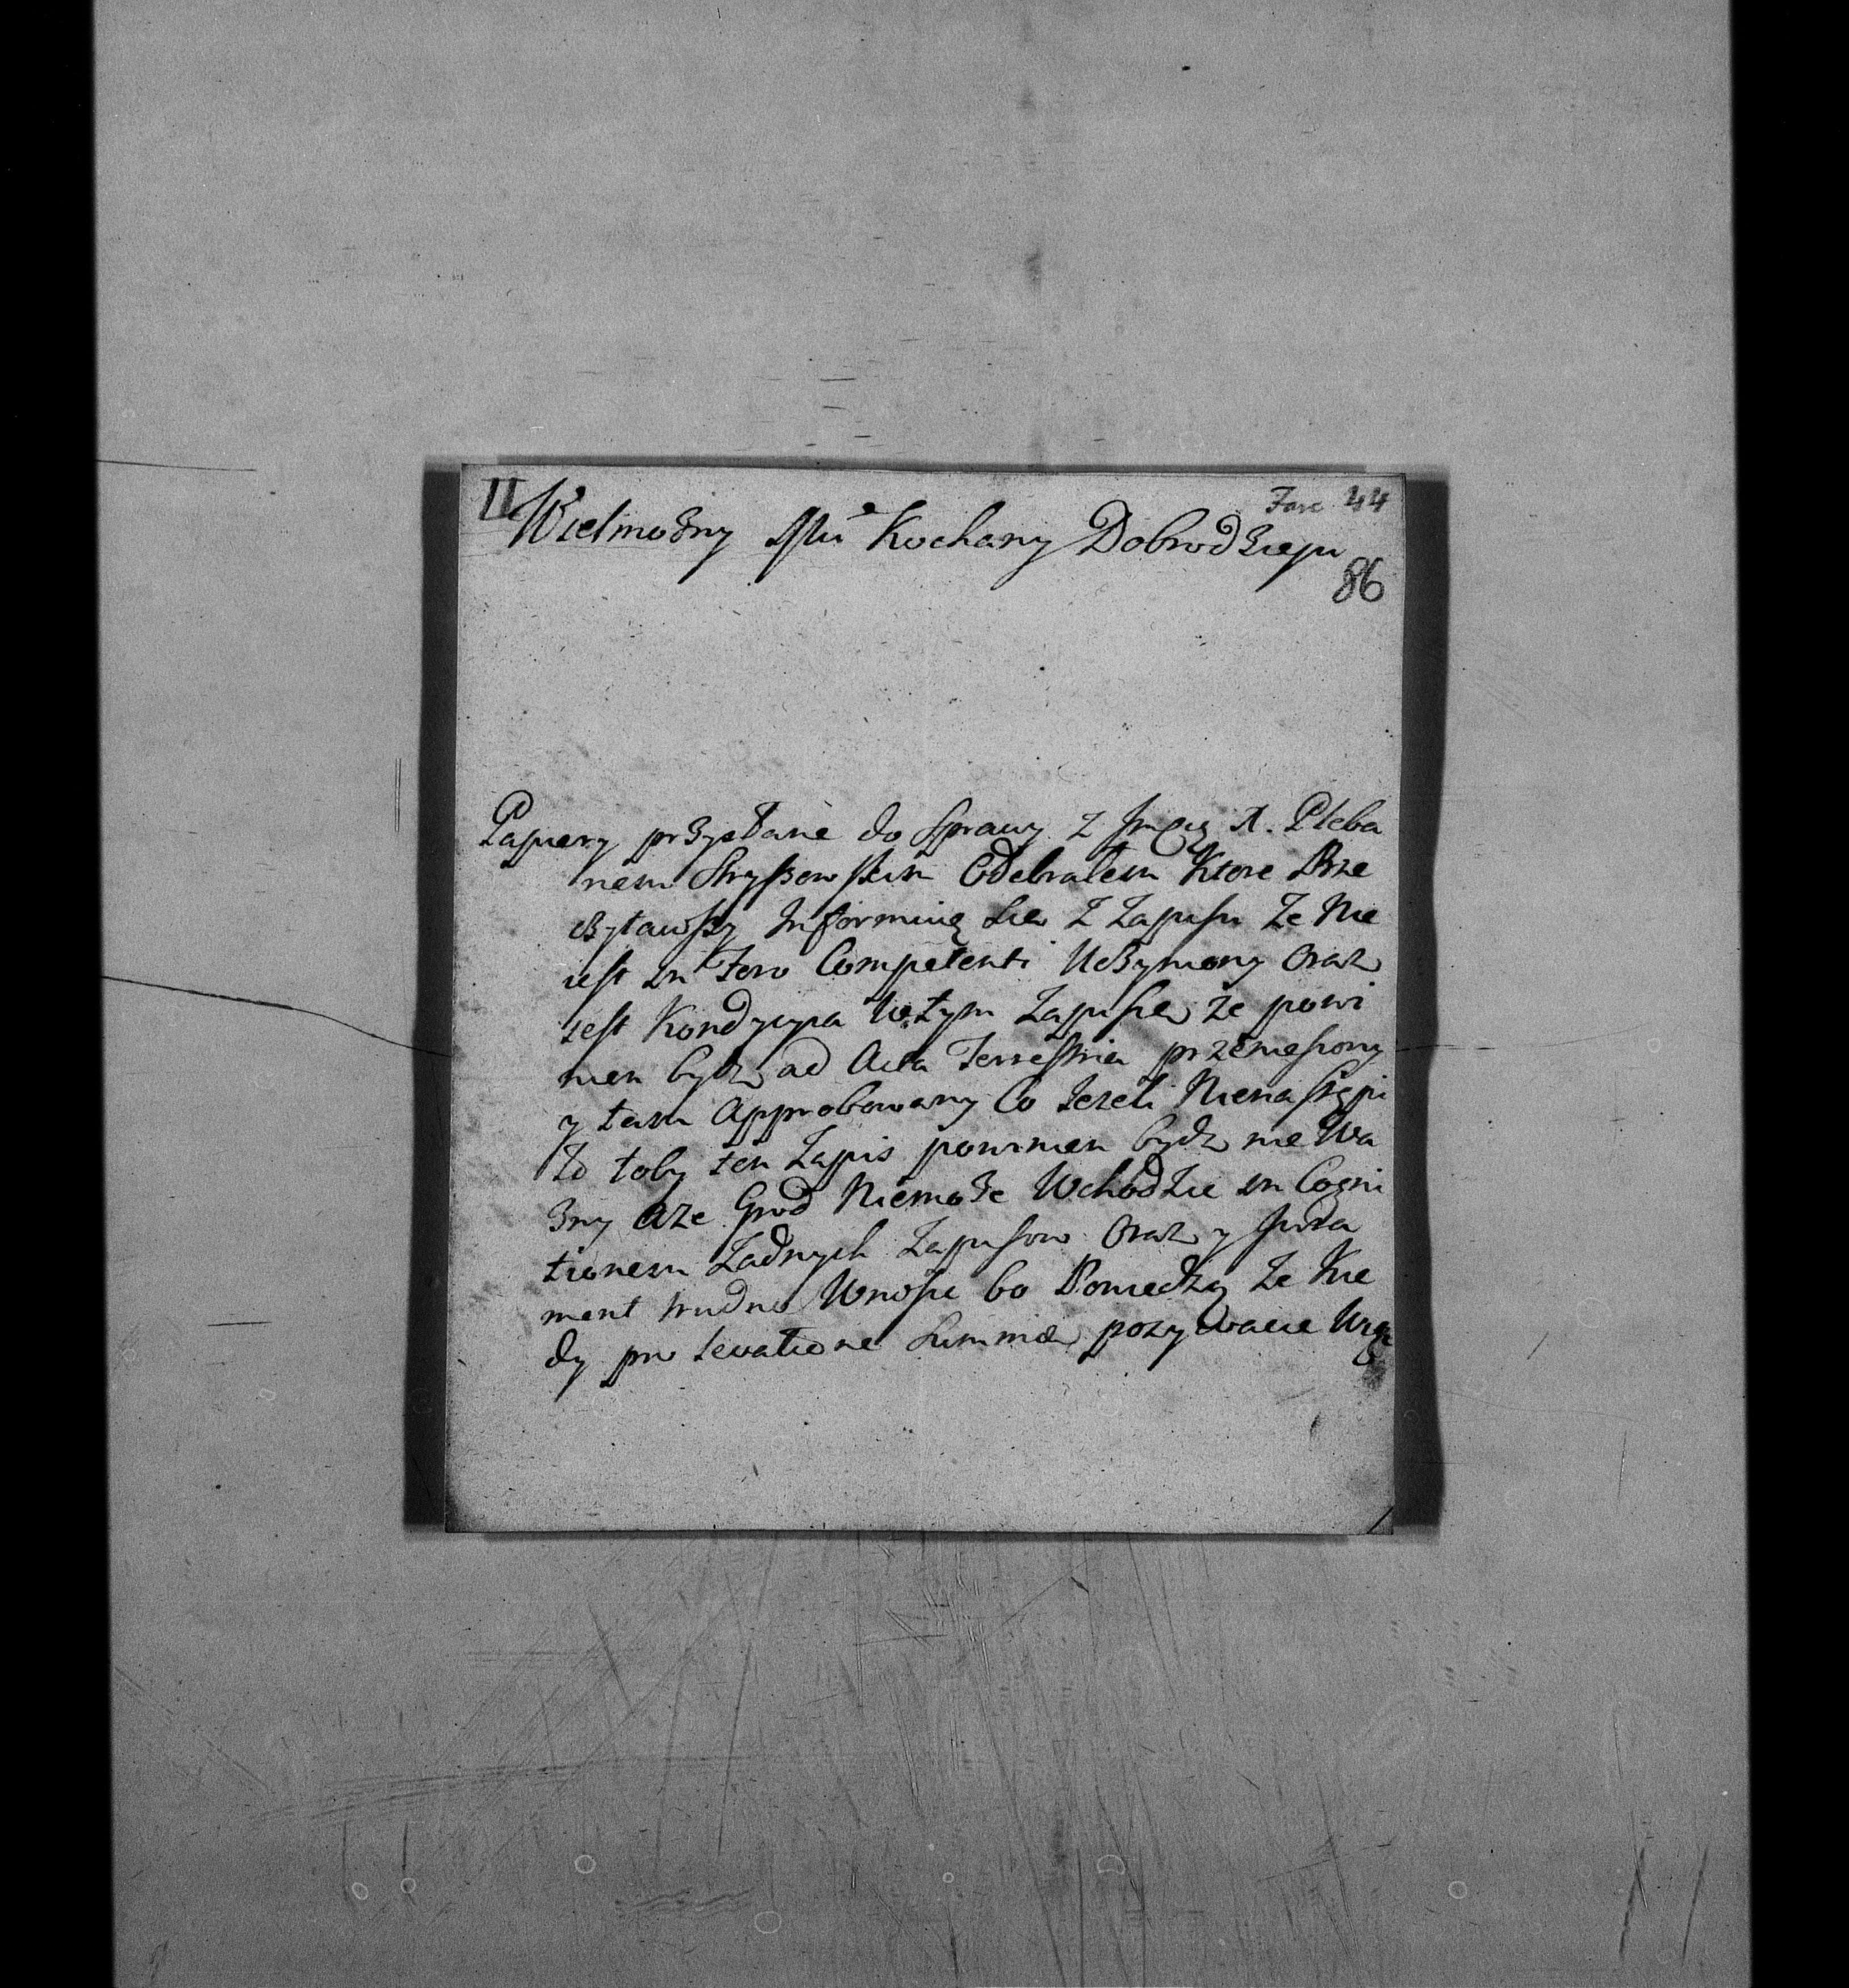 II
Fasc 44
Wielmożny Mci Kochany Dobrodzieju
86
Papiery przysłane do Sprawy z Jmcią X. Pleba
nem Stryszowskim Odebrałem Ktore Prze
czytawszy Informuię Sie z Zapisu Ze Nie
iest in Foro Competenti Uczyniony Oraz
iest Kondycya W tym Zapisie że powi
nien bydz ad Acta Terrestria przeniesiony
y tam Approbowany Co Jezeli Nienastąpi
to toby ten Zapis powinien bydz nie Wa
żny aże Grod Niemoże Wchodzic in Cogni
tionem Zadnych Zapisow Oraz y Jura
ment trudno Wnosic bo Powiedzą Ze Kie
dy pro levatione Summæ pozywacie